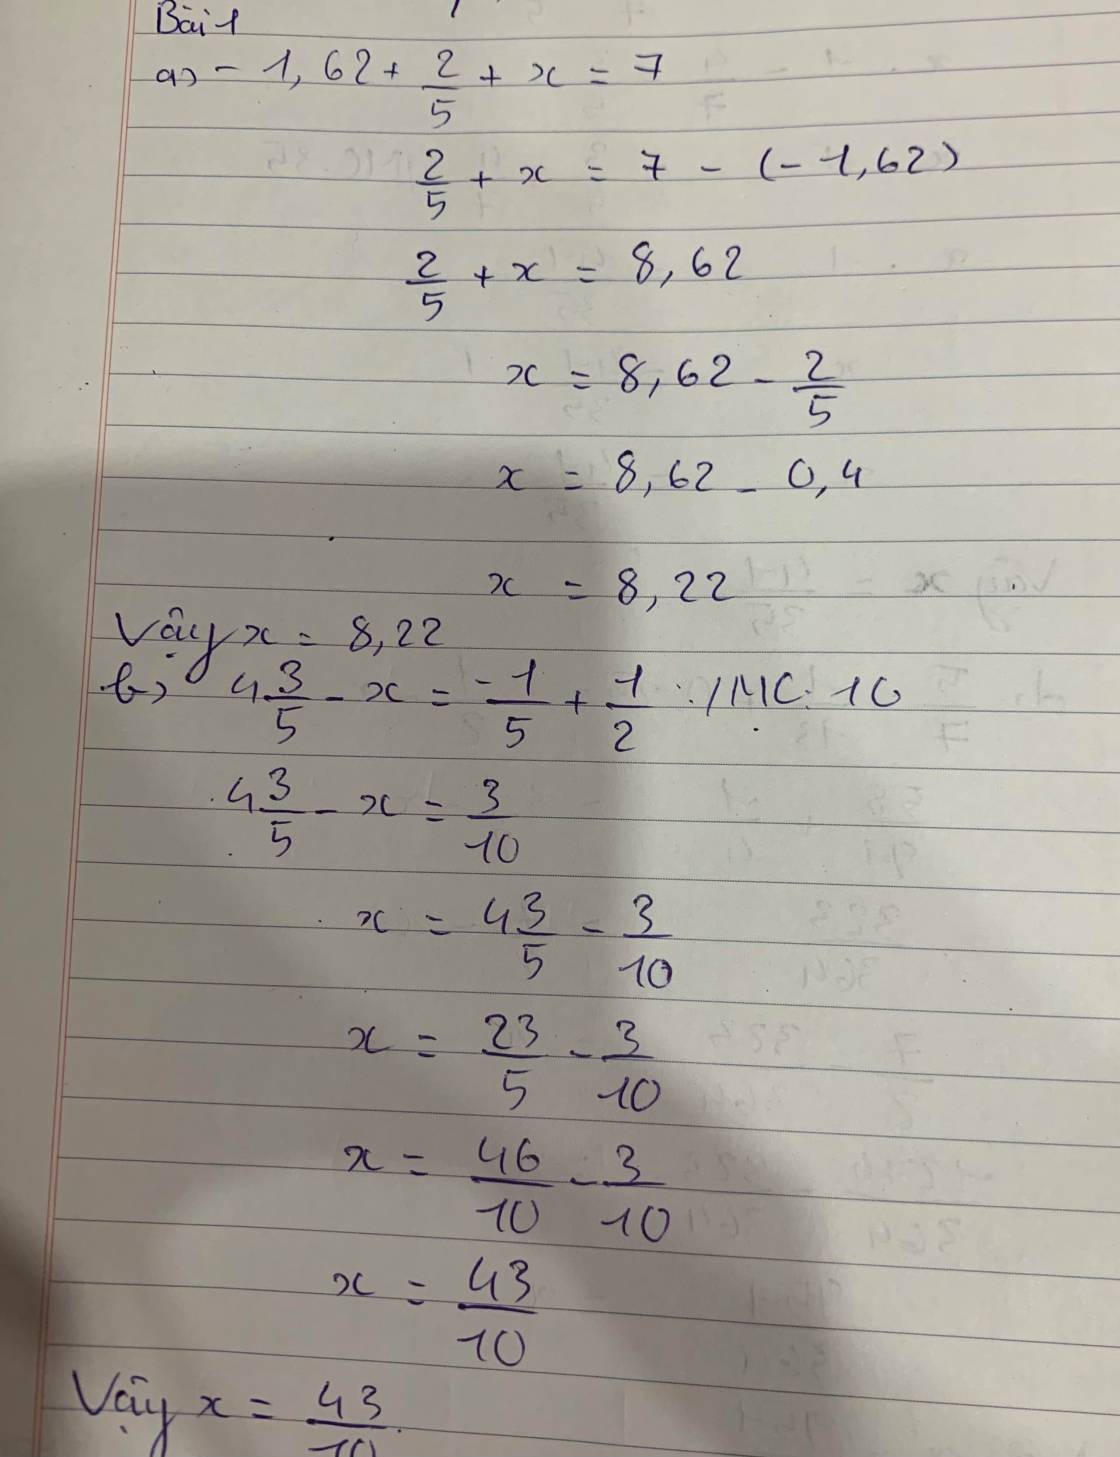 Bài 1
a) - 1,62 + 2/5 + x = 7
2/5 + x = 7 - (-1,62)
2/5 + x = 8,62
x = 8,62 - 2/5
x = 8,62 - 0,4
x = 8,22
Vậy x = 8,22
b) 4 3/5 - x = -1/5 + 1/2 . / MC: 10
4 3/5 - x = 3/10
x = 4 3/5 - 3/10
x = 23/5 - 3/10
x = 46/10 - 3/10
x = 43/10
Vậy x = 43/10